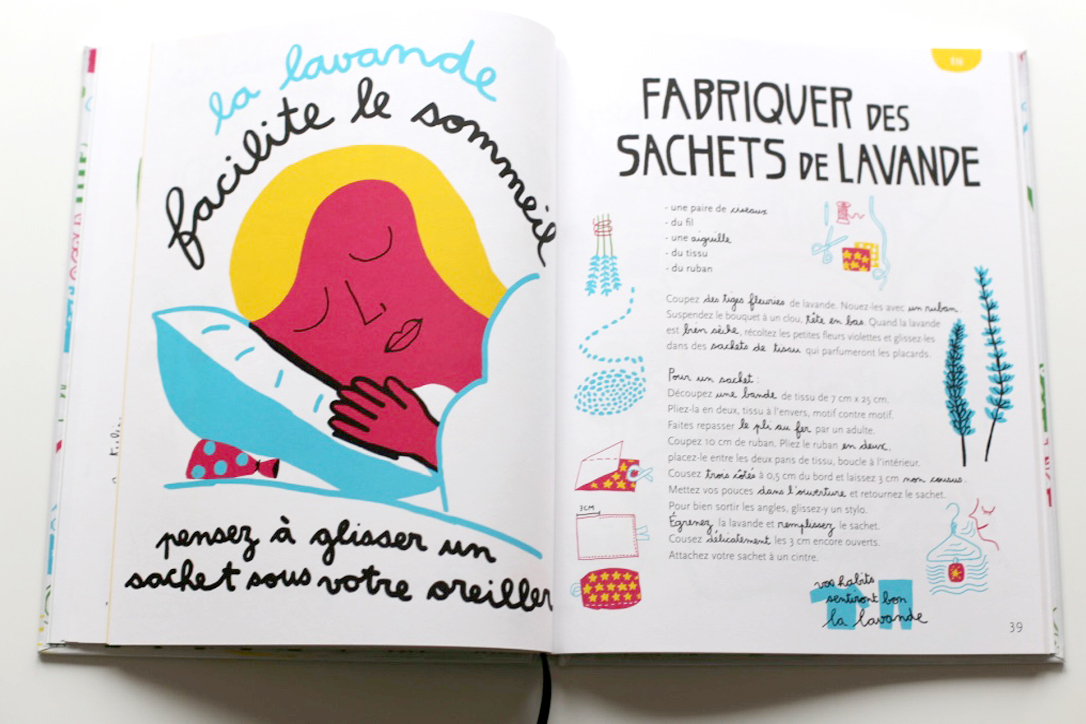 la lavande
facilite le sommeil
pensez à glisser un
sachet sous votre oreiller
FABRIQUER DES
SACHETS DE LAVANDE
- une paire de ciseaux
- du fil
- une aiguille
- du tissu
- du ruban
Coupez des tiges fleuries de lavande. Nouez-les avec un ruban.
Suspendez le bouquet à un clou, tête en bas. Quand la lavande
est bien sèche, récoltez les petites fleurs violettes et glissez-les
dans des sachets de tissu qui parfumeront les placards.
Pour un sachet :
Découpez une bande de tissu de 7 cm x 25 cm.
Pliez-la en deux, tissu à l'envers, motif contre motif.
Faites repasser le pli au fer par un adulte.
Coupez 10 cm de ruban. Pliez le ruban en deux,
placez-le entre les deux pans de tissu, boucle à l'intérieur.
Cousez trois côtés à 0,5 cm du bord et laissez 3 cm non cousus.
Mettez vos pouces dans l'ouverture et retournez le sachet.
Pour bien sortir les angles, glissez-y un stylo.
Égrenez la lavande et remplissez le sachet.
Cousez délicatement les 3 cm encore ouverts.
Attachez votre sachet à un cintre.
3CM
vos habits
sentiront bon
la lavande
39